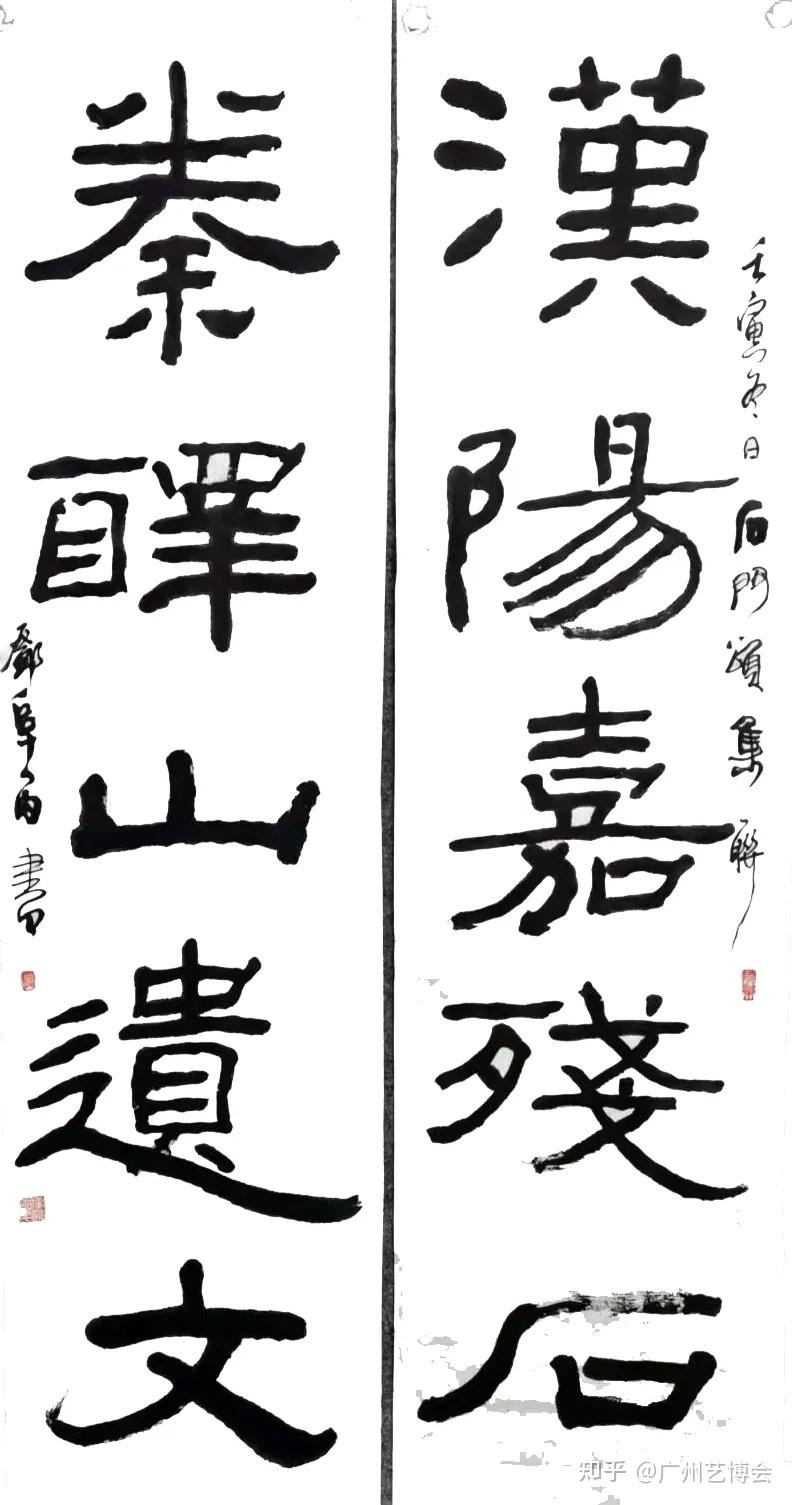 漢陽嘉殘石
壬寅冬日石門頌集聯
秦醳山遺文
書
知乎 @广州艺博会